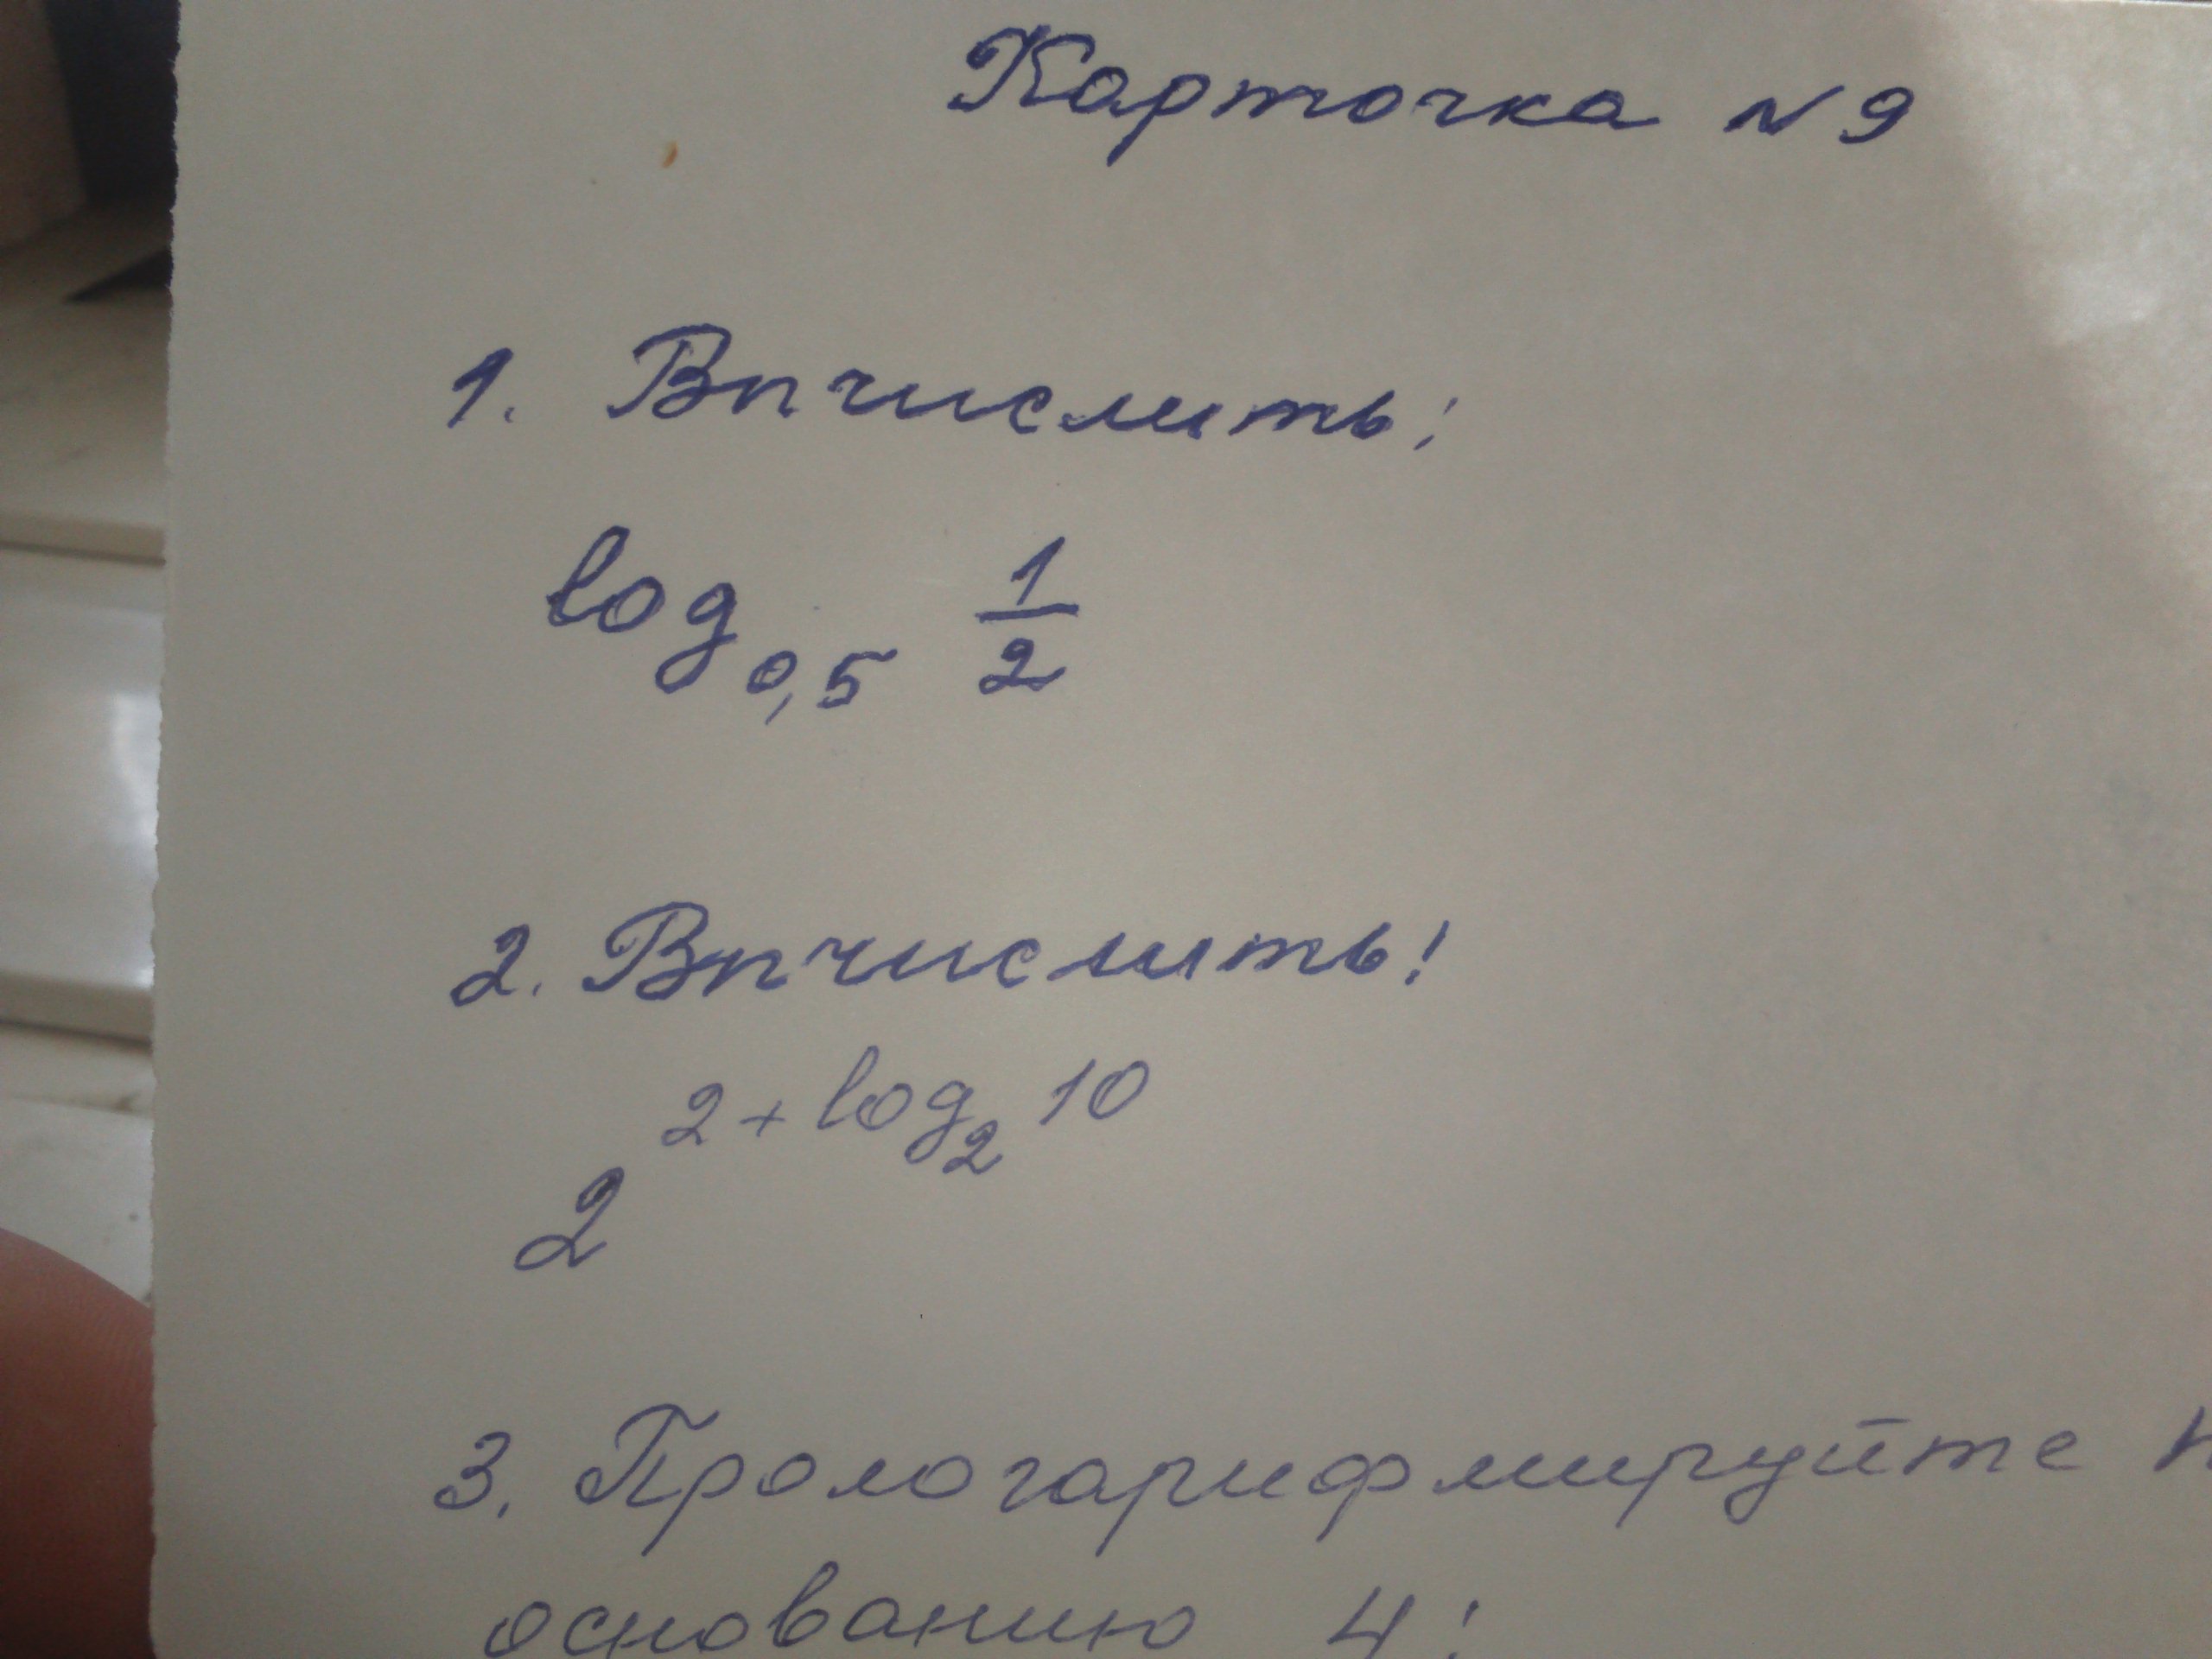 Карточка N 9
1. Вычислить:
log₀,₅ 1/2
2. Вычислить:
2^(2+log₂10)
3. Прологарифмируйте
основанию 4: